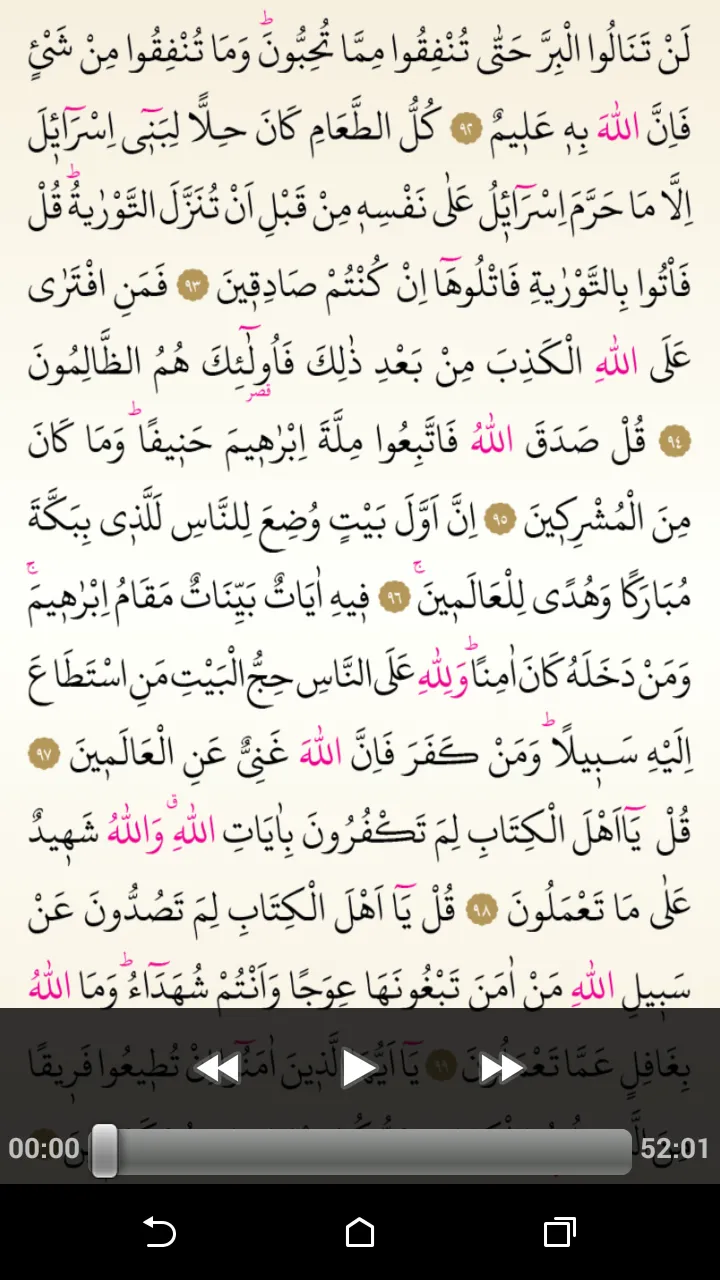 لَنْ تَنَالُوا الْبِرَّ حَتّٰى تُنْفِقُوا مِمَّا تُحِبُّونَۜ وَمَا تُنْفِقُوا مِنْ شَيْءٍ
فَاِنَّ اللّٰهَ بِه۪ عَل۪يمٌ ﴿٩٢﴾ كُلُّ الطَّعَامِ كَانَ حِلًّا لِبَن۪ٓى اِسْرَٓائ۪لَ
اِلَّا مَا حَرَّمَ اِسْرَٓائ۪لُ عَلٰى نَفْسِه۪ مِنْ قَبْلِ اَنْ تُنَزَّلَ التَّوْرٰيةُۜ قُلْ
فَأْتُوا بِالتَّوْرٰيةِ فَاتْلُوهَٓا اِنْ كُنْتُمْ صَادِق۪ينَ ﴿٩٣﴾ فَمَنِ افْتَرٰى
عَلَى اللّٰهِ الْكَذِبَ مِنْ بَعْدِ ذٰلِكَ فَاُولٰٓئِكَ هُمُ الظَّالِمُونَ
قصر
﴿٩٤﴾ قُلْ صَدَقَ اللّٰهُ فَاتَّبِعُوا مِلَّةَ اِبْرٰه۪يمَ حَن۪يفًاۜ وَمَا كَانَ
مِنَ الْمُشْرِك۪ينَ ﴿٩٥﴾ اِنَّ اَوَّلَ بَيْتٍ وُضِعَ لِلنَّاسِ لَلَّذ۪ى بِبَكَّةَ
مُبَارَكًا وَهُدًى لِلْعَالَم۪ينَۚ ﴿٩٦﴾ ف۪يهِ اٰيَاتٌ بَيِّنَاتٌ مَقَامُ اِبْرٰه۪يمَۚ
وَمَنْ دَخَلَهُ كَانَ اٰمِنًاۜ وَلِلّٰهِ عَلَى النَّاسِ حِجُّ الْبَيْتِ مَنِ اسْتَطَاعَ
اِلَيْهِ سَب۪يلًاۜ وَمَنْ كَفَرَ فَاِنَّ اللّٰهَ غَنِىٌّ عَنِ الْعَالَم۪ينَ ﴿٩٧﴾
قُلْ يَٓااَهْلَ الْكِتَابِ لِمَ تَكْفُرُونَ بِاٰيَاتِ اللّٰهِۗ وَاللّٰهُ شَه۪يدٌ
عَلٰى مَا تَعْمَلُونَ ﴿٩٨﴾ قُلْ يَٓا اَهْلَ الْكِتَابِ لِمَ تَصُدُّونَ عَنْ
سَب۪يلِ اللّٰهِ مَنْ اٰمَنَ تَبْغُونَهَا عِوَجًا وَاَنْتُمْ شُهَدَٓاءُۜ وَمَا اللّٰهُ
بِغَافِلٍ عَمَّا تَعْمَلُونَ ﴿٩٩﴾ يَٓا اَيُّهَا الَّذ۪ينَ اٰمَنُٓوا اِنْ تُط۪يعُوا فَر۪يقًا
00:00 52:01